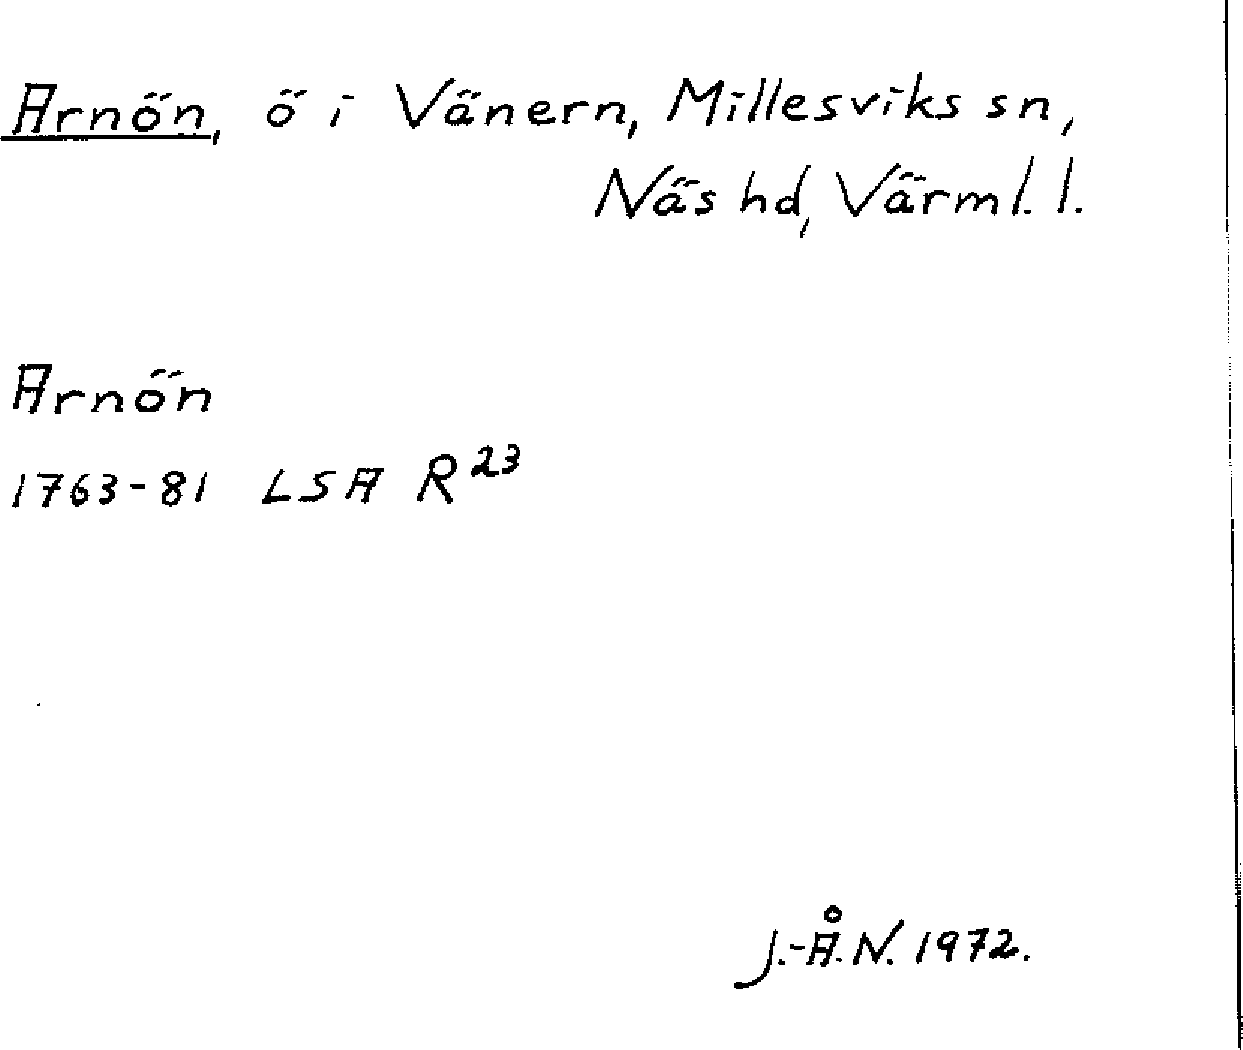 Arnön, ö i Vänern, Millesviks sn,
Näs hd, Värml. l.
Arnön
1763-81 LSA R 23
J.-Å.N. 1972.